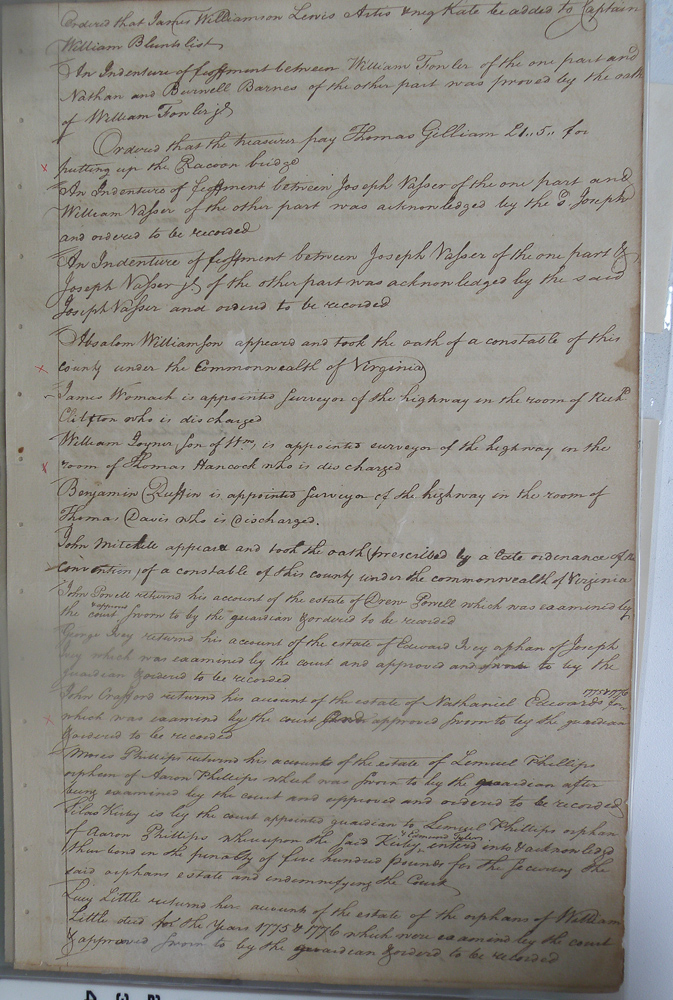 Ordered that James Williamson Lewis Artis & neg Kate be added to Captain
William Blunts list
An Indenture of feoffment between William Fowler of the one part and
Nathan and Burwell Barnes of the other part was proved by the oath
of William Fowler jr
Ordered that the treasurer pay Thomas Gilliam 21..5.. for
putting up the Racoon bridge
An Indenture of feoffment between Joseph Vasser of the one part and
William Vasser of the other part was acknowledged by the sd Joseph
and ordered to be recorded
An Indenture of feoffment between Joseph Vasser of the one part &
Joseph Vasser jr of the other part was acknowledged by the said
Joseph Vasser and ordered to be recorded
Absalom Williamson appeard and took the oath of a constable of this
county under the Commonwealth of Virginia
James Womack is appointed Surveyor of the highway in the room of Richd
Clifton who is discharged
William Joyner son of Wm. is appointed surveyor of the highway in the
room of Thomas Hancock who is discharged
Benjamin Ruffin is appointed Surveyor of the highway in the room of
Thomas Davis who is discharged.
John Mitchell appeard and took the oath prescribed by a late ordenance of the
convention, of a constable of this county under the commonwealth of Virginia
John Powell returns his account of the estate of Drew Powell which was examined by
the court approvd sworn to by the guardian & ordered to be recorded
George Ivey returnd his account of the estate of Edward Ivey orphan of Joseph
Ivey which was examined by the court and approved and sworn to by the
guardian & ordered to be recorded
John Crafford returnd his account of the estate of Nathaniel Edwards for 1775 & 1776
which was examind by the court and approved sworn to by the guardian
& ordered to be recorded
Moses Phillips returnd his accounts of the estate of Lemuel Phillips
orphan of Aaron Phillips which was sworn to by the guardian after
being examined by the court and approved and ordered to be recorded
Silas Kirby is by the court appointed guardian to Lemuel Phillips orphan
of Aaron Phillips whereupon the said Kirby & Edmund Tyler enterd into & acknowledged
their bond in the penalty of five hundred pounds for the securing the
said orphans estate and indemnifying the Court
Lucy Little returnd here accounts of the estate of the orphans of William
Little decd for the Years 1775 & 1776 which were examind by the court
& approved sworn to by the guardian & orderd to be recorded